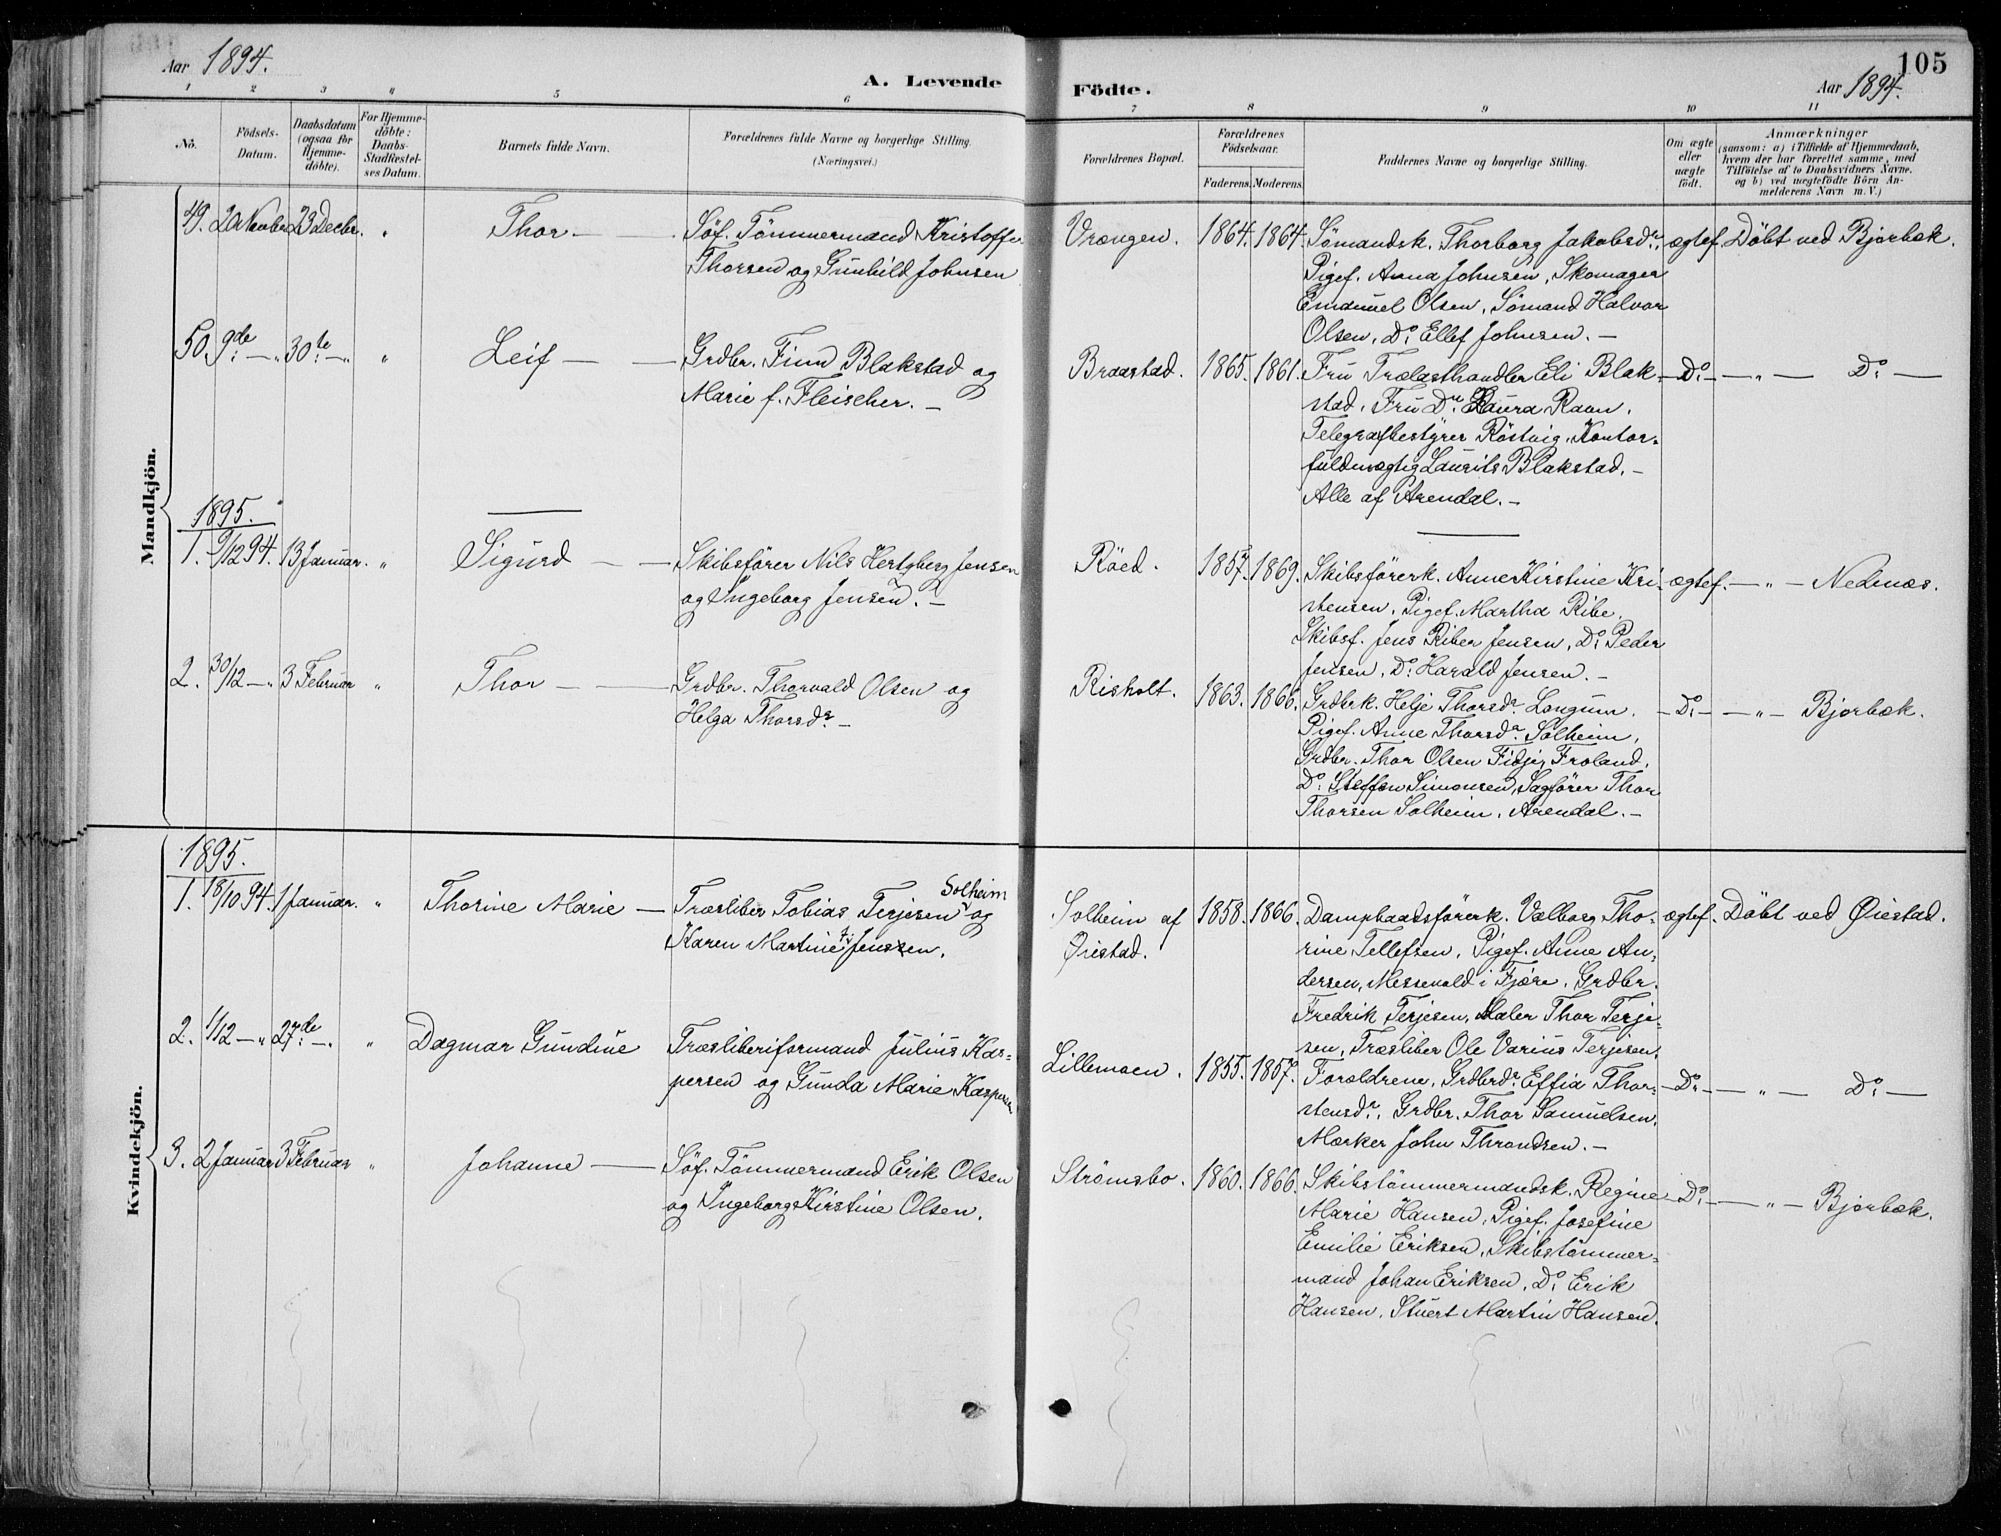 Aar 1894.
A. Levende Födte.
105
Aar 1894.
1 2 3 " 5 6 7 8 9 10 11
No.
Födsels-Datum.
Daabsdatum (ogsaa for Hjemmedöbte).
For Hjemmedöbte: Daabs-Stadfæstelses Datum.
Barnets fulde Navn.
Forældrenes fulde Navne og borgerlige Stilling. (Næringsvei.)
Forældrenes Bopæl.
Forældrenes Födselsaar.
Faderens. Moderens.
Faddernes Navne og borgerlige Stilling.
Om ægte eller uægte födt.
Anmærkninger
(saasom: a) i Tilfælde af Hjemmedaab,
hvem der har forrettet samme, med
Tilföielse af to Daabsvidners Navne.
og b) ved uægtefödte Börn An-
melderens Navn m. V.)
Mandkjön.
49. 23 Decbr. " Thor — Söf. Tömmermand Kristoffer
Thorsen og Gunhild Johnsen
Vrængen. 1864. 1864. Sömandsk. Thorborg Jakobsdr., ægtef. Döbt ved Bjorbæk.
Pigef. Anna Johnsen, Skomager
Emanuel Olsen, Sömand Halvor
Olsen, Do. Ellef Johnsen. —
50. 9de — " 30te — " " Leif — — Grdbr. Finn Blakstad og
Marie f. Fleischer. —
Braastad. 1865. 1861. Fru Trælasthandler Eli Blak- — Do. — — " — Do. —
stad, Fru Do. Laura Ravn,
Telegrafbestyrer Röstvig, Kontor-
fuldmægtig Laurits Blakstad. —
Alle af Arendal. —
1895.
1. 9/12 94. 13 Januar. " Sigurd — — Skibsförer Nils Hertzberg Jensen
og Ingeborg Jensen. —
Röed. 1857. 1869. Skibsförerk. Anne Kirstine Kri- ægtef. — " — Nedenæs.
stensen, Pigef. Martha Ribe,
Skibsf. Jens Riber Jensen, Do. Peder
Jensen, Do. Harald Jensen. —
2. 30/12 — " 3 Februar " Thor — — Grdbr. Thorvald Olsen og
Helga Thorsdr. —
Risholt. 1863. 1866. Grdbrk. Helje Thorsdr. Longum. — Do. — — " — Bjorbæk.
Pigef. Anne Thorsdr. Solheim,
Grdbr. Thor Olsen Fidjer, Froland,
Do. Steffen Simonsen, Sagförer Thor
Thorsen Solheim, Arendal. —
Kvindekjön.
1895.
1. 18/10 94. 1 Januar. " Thorine Marie — Træsliber Tobias Terjesen Solheim og
Karen Martine f. Jenssen.
Solheim af
Øiestad.
1858. 1866. Dampbaadsförerk. Valborg Tho- ægtef. Döbt ved Øiestad.
rine Tellefsen, Pigef. Anne An-
dersen, Messevold i Fjære, Grdbr.
Fredrik Terjesen, Maler Thor Terje-
sen, Træsliber Ole Varius Terjesen.
2. 1/12 — " 27de — " " Dagmar Gundine Træsliberiformand Julius Kas-
persen og Gunda Marie Kaspersen
Lillemoen. 1855. 1857. Forældrene, Grdbrdr. Effia Thor- — Do. — — " — Do. —
stensdr., Grdbr. Thor Samuelsen,
Mærker John Throndsen. —
3. 2 Januar 3 Februar " Johanne — Söf. Tömmermand Erik Olsen
og Ingeborg Kirstine Olsen.
Strömsbo. 1860. 1866. Skibstömmermandsk. Regine — Do. — — " — Bjorbæk.
Marie Hansen, Pigef. Josefine
Emilie Eriksen, Skibstömmer-
mand Johan Eriksen, Do. Erik
Hansen, Stuert Martin Hansen.